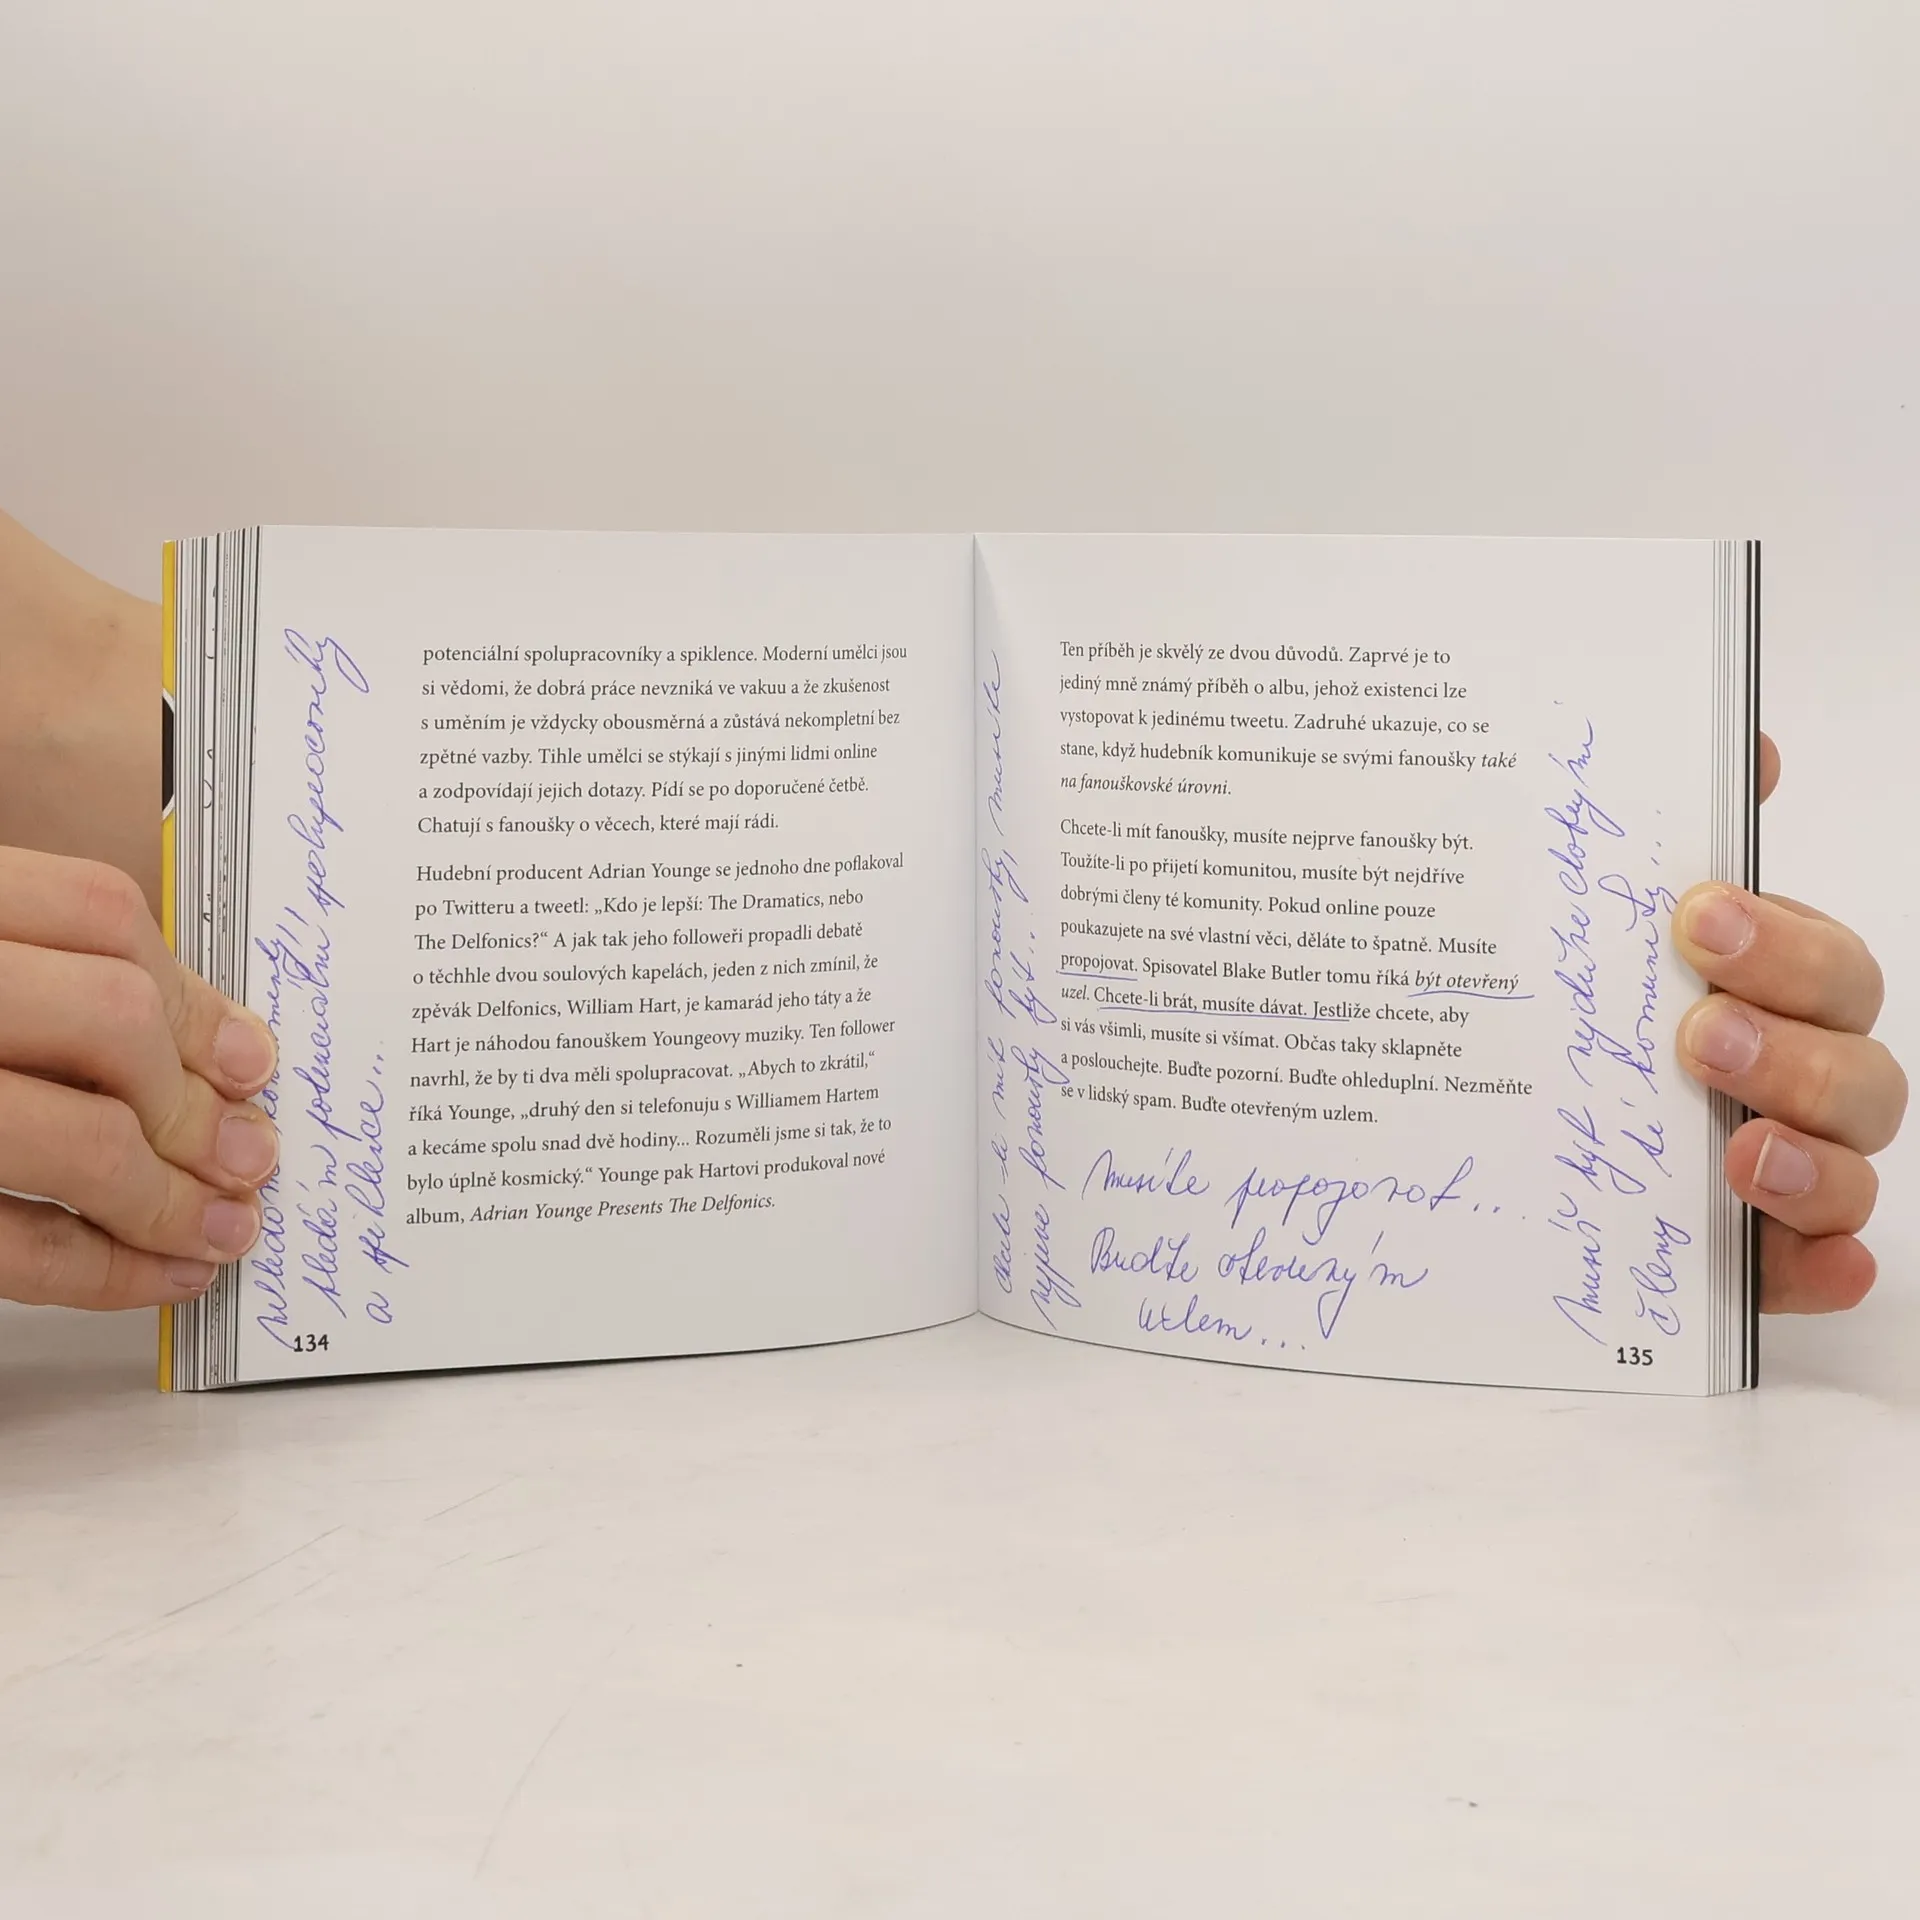 potenciální spolupracovníky a spiklence. Moderní umělci jsou
si vědomi, že dobrá práce nevzniká ve vakuu a že zkušenost
s uměním je vždycky obousměrná a zůstává nekompletní bez
zpětné vazby. Tihle umělci se stýkají s jinými lidmi online
a zodpovídají jejich dotazy. Pídí se po doporučené četbě.
Chatují s fanoušky o věcech, které mají rádi.
Hudební producent Adrian Younge se jednoho dne poflakoval
po Twitteru a tweetl: „Kdo je lepší: The Dramatics, nebo
The Delfonics?“ A jak tak jeho followeři propadli debatě
o těchhle dvou soulových kapelách, jeden z nich zmínil, že
zpěvák Delfonics, William Hart, je kamarád jeho táty a že
Hart je náhodou fanouškem Youngeovy muziky. Ten follower
navrhl, že by ti dva měli spolupracovat. „Abych to zkrátil,“
říká Younge, „druhý den si telefonuju s Williamem Hartem
a kecáme spolu snad dvě hodiny... Rozuměli jsme si tak, že to
bylo úplně kosmický.“ Younge pak Hartovi produkoval nové
album, Adrian Younge Presents The Delfonics.
hledám potenciální spolupracovníky
a spiklence...
134
chcete-li mít fanoušky, musíte
nejprve fanoušky být...
Ten příběh je skvělý ze dvou důvodů. Zaprvé je to
jediný mně známý příběh o albu, jehož existenci lze
vystopovat k jedinému tweetu. Zadruhé ukazuje, co se
stane, když hudebník komunikuje se svými fanoušky také
na fanouškovské úrovni.
Chcete-li mít fanoušky, musíte nejprve fanoušky být.
Toužíte-li po přijetí komunitou, musíte být nejdříve
dobrými členy té komunity. Pokud online pouze
poukazujete na své vlastní věci, děláte to špatně. Musíte
propojovat. Spisovatel Blake Butler tomu říká být otevřený
uzel. Chcete-li brát, musíte dávat. Jestliže chcete, aby
si vás všimli, musíte si všímat. Občas taky sklapněte
a poslouchejte. Buďte pozorní. Buďte ohleduplní. Nezměňte
se v lidský spam. Buďte otevřeným uzlem.
musíte propojovat...
Buďte otevřeným
uzlem...
být nejdříve dobrými
členy té komunity...
135